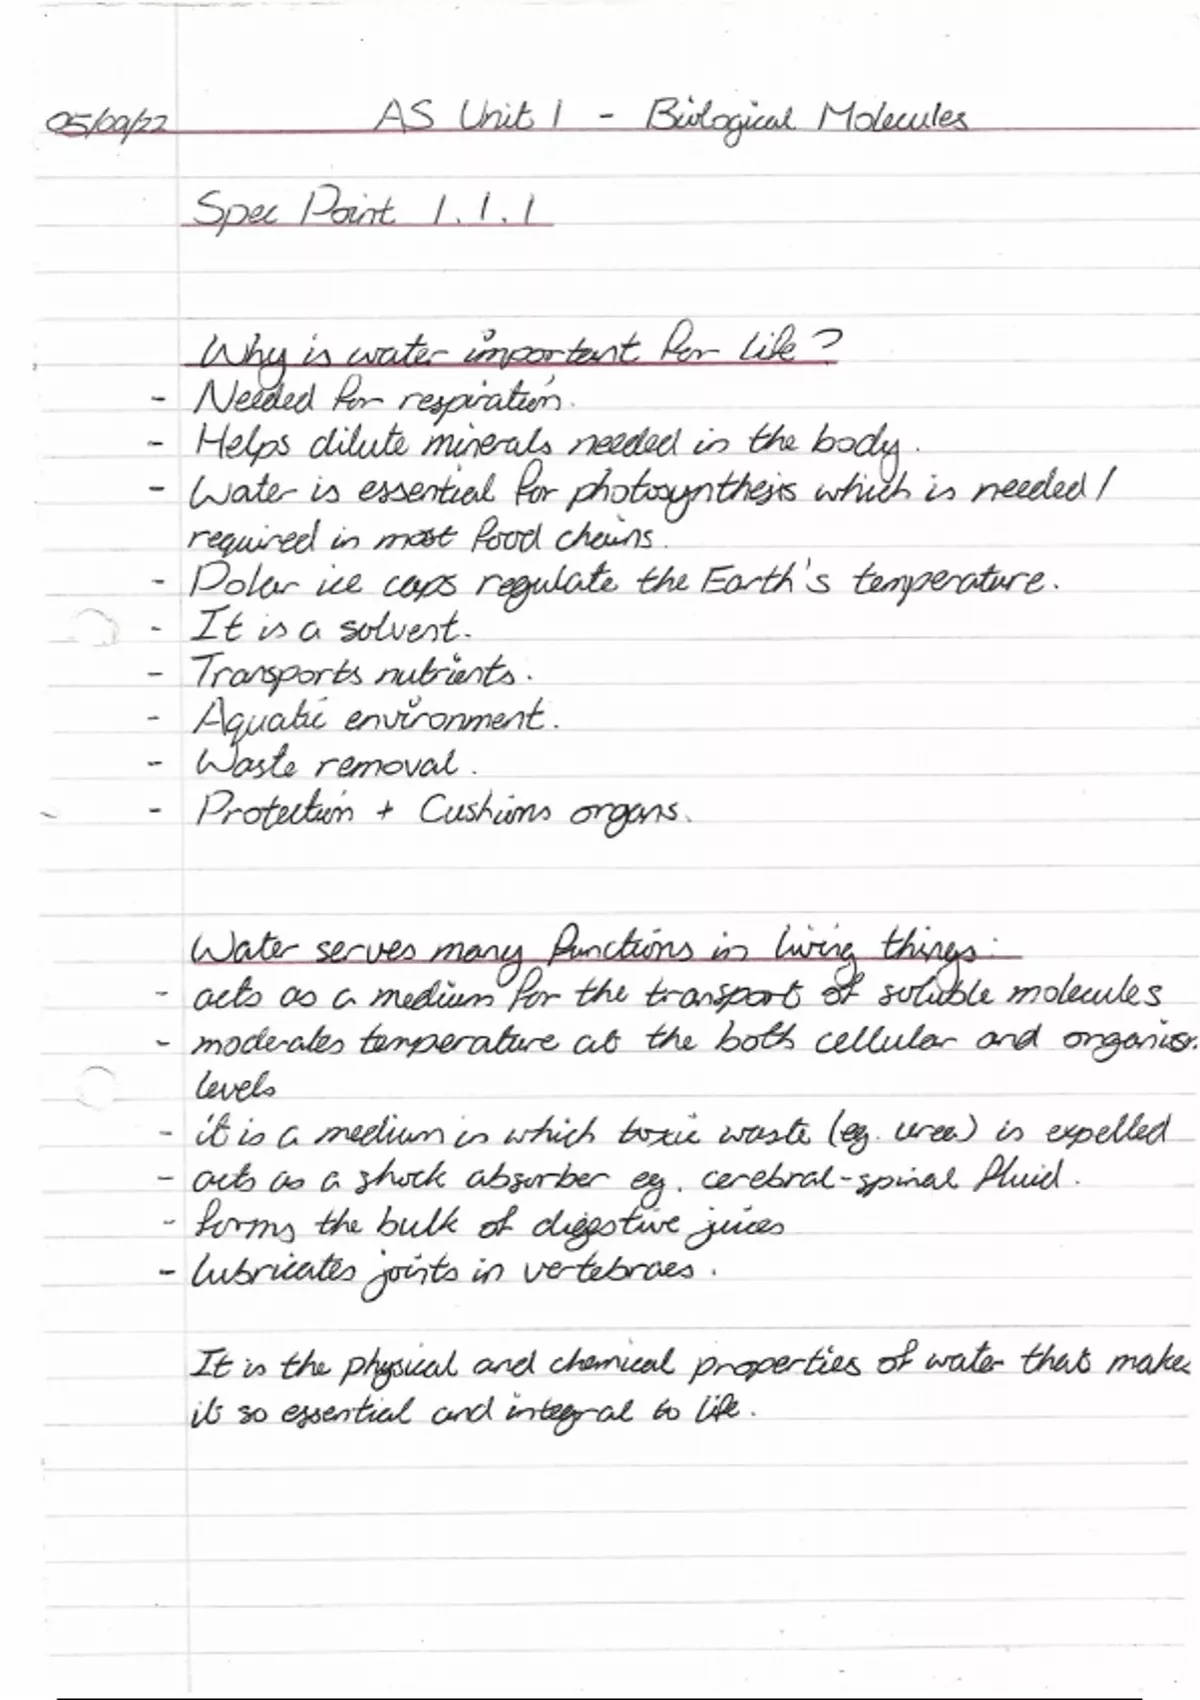 05/09/22 AS Unit 1 - Biological Molecules
Spec Point 1.1.1
Why is water important for life?
- Needed for respiration.
- Helps dilute minerals needed in the body.
- Water is essential for photosynthesis which is needed /
required in most food chains.
- Polar ice caps regulate the Earth's temperature.
- It is a solvent.
- Transports nutrients.
- Aquatic environment.
- Waste removal.
- Protection + Cushions organs.
Water serves many functions in living things:
- acts as a medium for the transport of soluble molecules
- moderates temperature at the both cellular and organism
levels
- it is a medium in which toxic waste (eg. urea) is expelled
- acts as a shock absorber eg. cerebral-spinal fluid.
- forms the bulk of digestive juices
- lubricates joints in vertebraes.
It is the physical and chemical properties of water that makes
it so essential and integral to life.